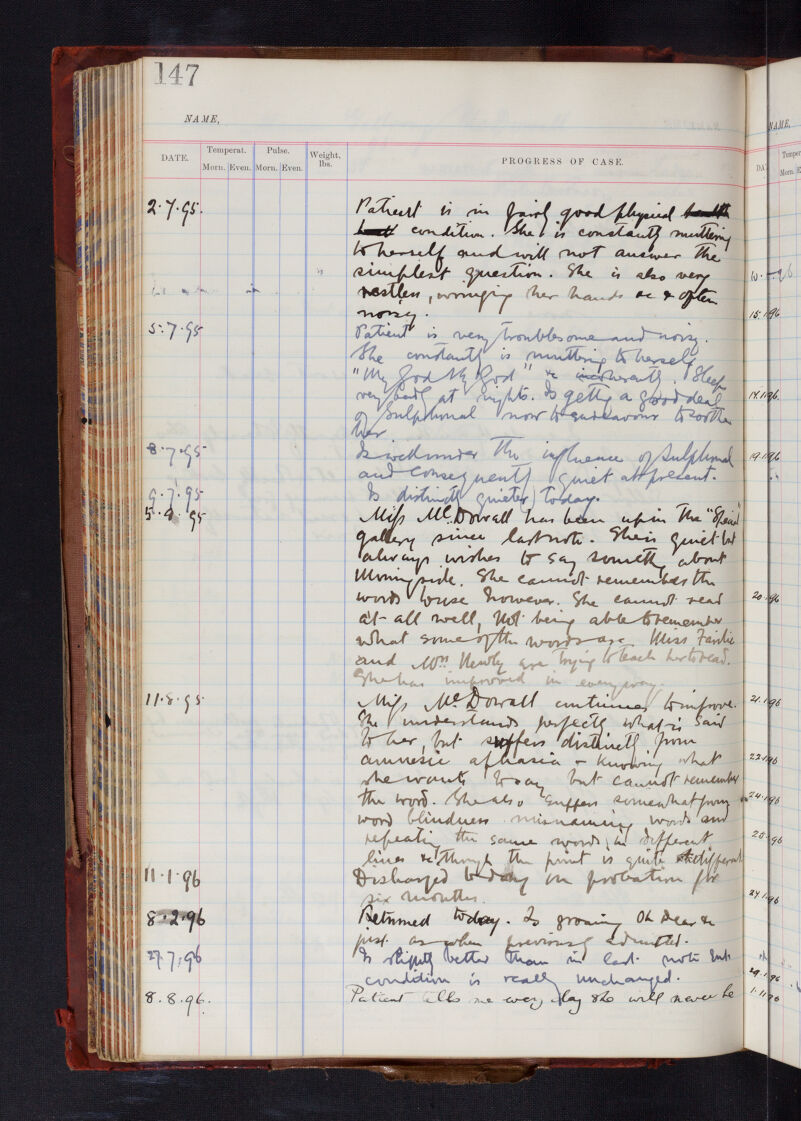 147
NAME,
DATE. Temperat. Pulse. Weight, lbs. PROGRESS OF CASE.
Morn. Even. Morn. Even.
2.7.95. Patient is in fairly good physical health
condition. She is constantly muttering
to herself and will not answer the
simplest question. She is also very
restless, wringing her hands &c & often
noisy.
5.7.95 Patient is very troublesome and noisy.
She constantly is muttering to herself
"My God My God" &c incoherently. Sleeps
very badly at nights. Is getting a good deal
of Sulphonal now to endeavour to soothe
her
8.7.95 Is well under the influence of Sulphonal
and consequently quiet at present.
9.7.95 Is distinctly quieter today.
5.9.95 Miss McDowall has been up in the
gallery since last note. She is quiet but
always wishes to say something about
Morningside. She cannot remember the
words to use however. She cannot read
at all well, not being able to remember
what some of the words are. Miss
and Mrs are trying to teach her to read.
She has improved in every way.
11.8.95 Miss McDowall continues to improve.
She understands perfectly what is said
to her, but suffers distinctly from
amnesic aphasia - knowing what
she wants to say but cannot remember
the word. She also suffers somewhat from
word blindness misnaming words and
repeating the same words in different
lines &c though the print is quite different
11.1.96 Discharged today on probation for
six months.
8.2.96 Returned today. Is groaning Oh Dear &c
just as when previously admitted.
27.7.96 Is slightly better than in last note but
condition is really unchanged.
8.8.96. Patient tells me every day she will never be
NAME,
Temper
Morn.
15.1.96
19.1.96
20.96
21.1.96
22.1.96
24.1.96